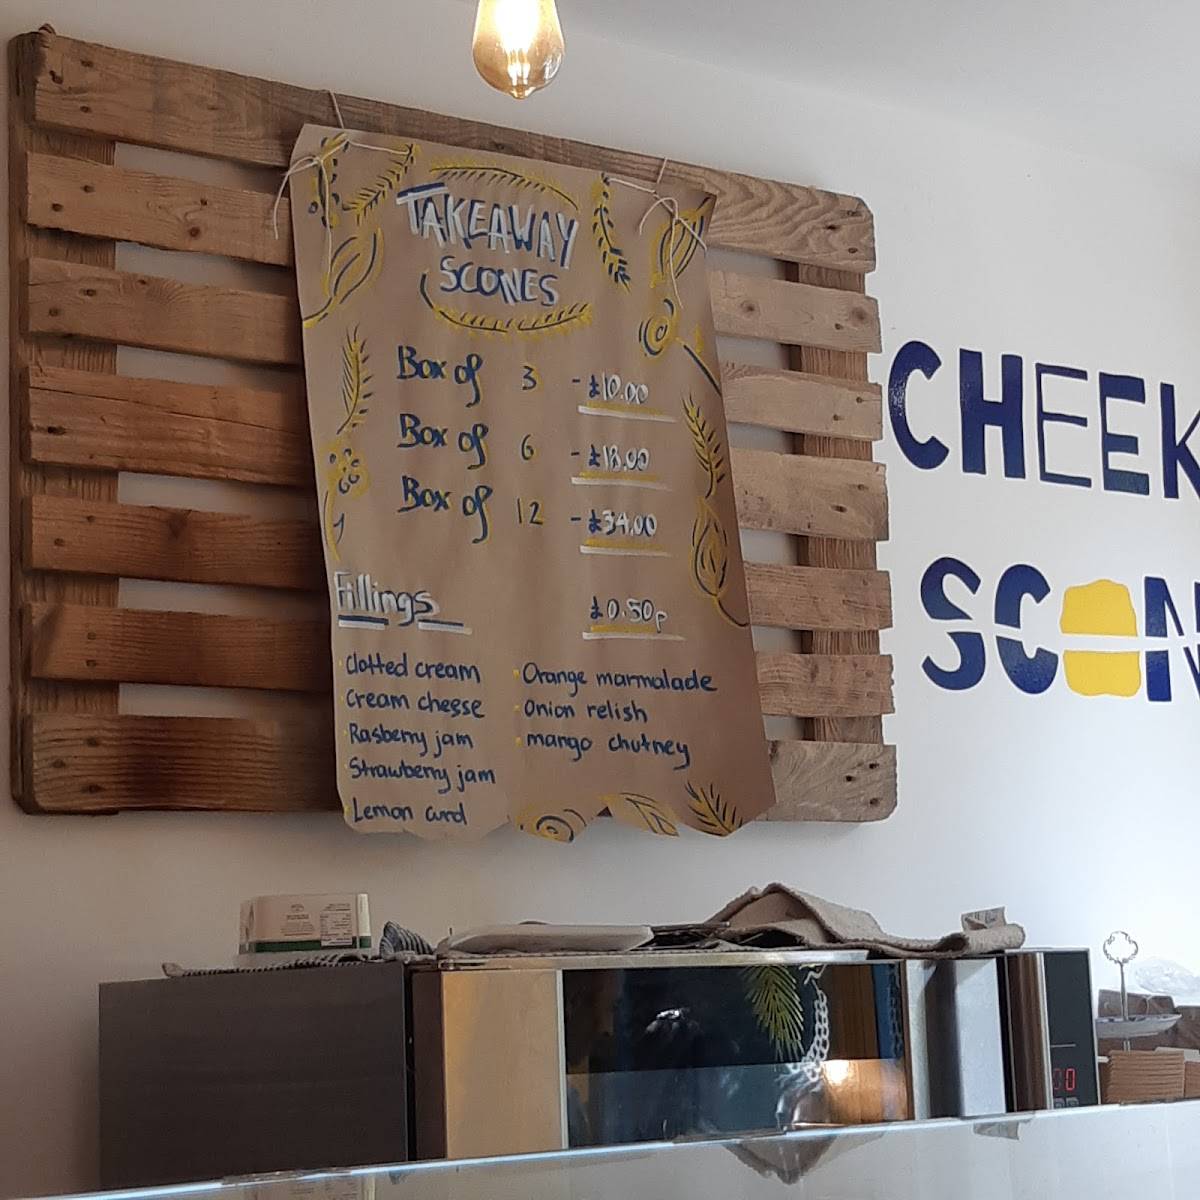 TAKEAWAY
SCONES
Box of 3 - £10.00
Box of 6 - £18.00
Box of 12 - £34.00
Fillings £0.50p
Clotted cream
Cream cheese
Rasberry jam
Strawberry jam
Lemon curd
Orange marmalade
Onion relish
mango chutney
CHEEK
SCON